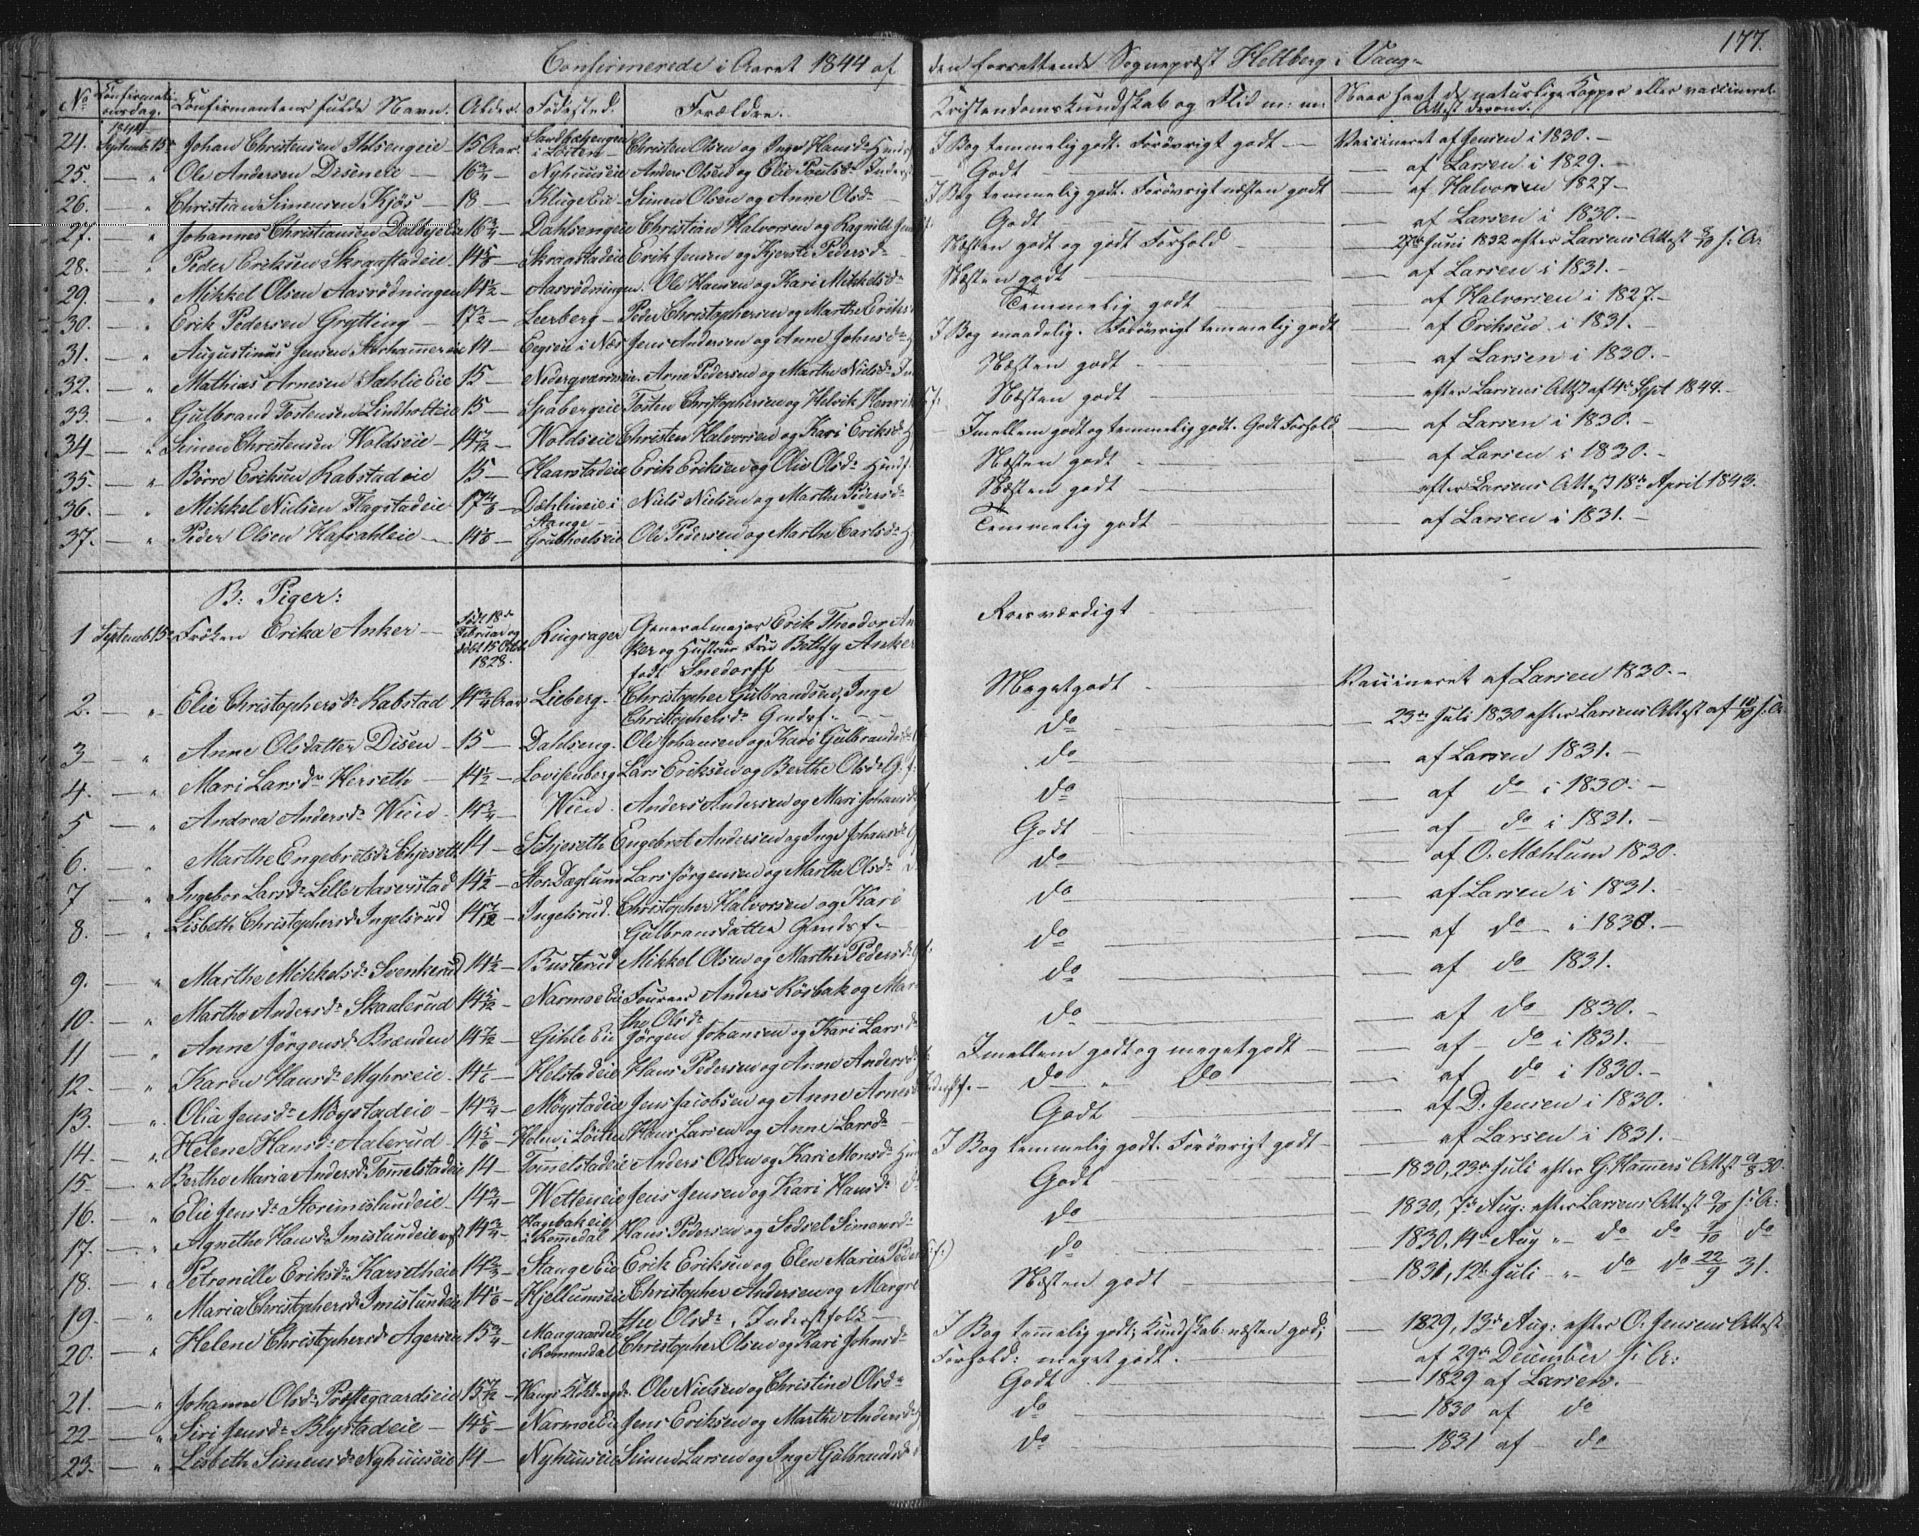 177.
Confirmerede i Aaret 1844 af den forrettende Sognepræst Hellberg i Vang
No Confirmationsdag. Confirmantens fulde Navn. Alder. Fødested. Forældre. Kristendomskundskab og Flid m: m: Naar havt de naturlige Kopper eller vaccineret. Attest derom.
1844
24. Septemb. 15 Johan Christensen 15 Aar. i Løiten Christen Olsen og Inge Hansd. I Bog temmelig godt. Forøvrigt godt — Vaccineret af Jensen i 1830. —
25. — " Ole Andersen Disen 16 3/4 Nyhuuseie Anders Olsen og Elie Poulsd. Godt — af Larsen i 1829. —
26. — " Christian Simensen Kjös 18 — Klugeeie Simen Olsen og Anne Olsd. I Bog temmelig godt. Forøvrigt næsten godt — af Halvorsen 1827 —
27. — " Johannes Christiansen Dalbyeie 16 3/4 Dahlsengeie Christian Halvorsen og Ragnild Godt — af Larsen i 1830. —
28. — " Peder Eriksen Skraastadeie Skragstadeie Erik Jensen og Kjersti Pedersd. Næsten godt og godt Forhold — 27de Juni 1832 efter Larsens Attest s: A:
29. — " Mikkel Olsen Aasrödningen 14 1/2 Aasrödningen. Ole Hansen og Kari Mikkelsd. Næsten godt — af Larsen i 1831. —
30. — " Erik Pedersen Grytting 17 1/2 Leerberg — Peder Christophersen og Marthe Eriksd. Temmelig godt — af Halvorsen i 1827. —
31. — " Augustinus Jensen Storhammereie 14 i Næs Jens Andersen og Anne Johnsd. I Bog maadelig. Forøvrigt temmelig godt — af Eriksen i 1831.
32. — " Mathias Arnesen Sahlie Eie 15 Arne Pedersen og Marthe Nielsd. Næsten godt — af Larsen i 1830. —
33. — " Gulbrand Tostensen Lindholteie 15 — Spabergeie Tosten Christophersen og Helvik Næsten godt — efter Larsens Attest af 4de Sept 1844. —
34. — " Simen Christensen Woldseie — 14 7/12 Woldseie Christen Halvorsen og Kari Eriksd. Imellem godt og temmelig godt. Godt Forhold — af Larsen i 1830. —
35. — " Börre Eriksen Rabstadeie 15 — Haarstadeie Erik Eriksen og Olie Olsd. Næsten godt — af Larsen i 1830. —
36. — " Mikkel Nielsen Flagstadeie Dæhlineie i Stange — Niels Nielsen og Marthe Pedersd. Næsten godt — efter Larsens Attest 18de April 1843.
37. — " Peder Olsen Hafsahleie Grubhoelseie Ole Pedersen og Marthe Carlsd. Temmelig godt — af Larsen i 1831. —
B: Piger:
1 Septemb. 15de Fröken Erika Anker — Född 18de Februar og döbt 15 Octbr. 1828. Ringsager Generalmajor Erik Theodor Anker og Hustrue Fru Betzy Anker født Snedorff Roesværdigt —
2. — " Elie Christophersd. Rabstad 14 3/4 Aar Lieberg — Christopher Gulbrandsen, Inge Christophersd. Meget godt — Vaccineret af Larsen 1830. —
3 — " Anne Olsdatter Disen — 15 — Dahlseng. Ole Johansen og Kari Gulbrandsd. do — 23de Juli 1830 efter Larsens Attest af s: A.
4. — " Mari Larsd. Herseth — 14 1/2 Lovisenberg Lars Eriksen og Berthe Olsd. do — af Larsen 1831. —
5 — " Andrea Andersd. Wien 14 3/4 Wien. Anders Andersen og Mari Johansd. do — af do i 1830. —
6. — " Marthe Engebretsd. Schjeseth 14 — Schjeseth Engebret Andersen og Inge Johansd. Godt — af do i 1831. —
7 — " Ingebor Larsd. Lille Aaserstad 14 1/2 Stor Dæglum Lars Jörgensen og Marthe Olsd. do — af O. Mohlum 1830.
8. — " Lisbeth Christophersd. Ingelsrud 14 Ingelsrud. Christopher Halvorsen og Kari Gulbransdatter do — af Larsen i 1831. —
9. — " Marthe Mikkelsd. Svenkerud 14 1/2 Busterud Mikkel Olsen og Marthe Pedersd. do — af do — i 1830. —
10. — " Marthe Andersd. Skaalerud 14 5/12 Narmoe Eie Anders Rösbak og Marthe Olsd. do — af do 1831.
11 — " Anne Jörgensd. Brænden 14 7/12 Gihle Eie Jörgen Johansen og Kari Larsd. do — af do 1830. —
12. — " Karen Hansd. Myhrseie — Helstadeie Hans Pedersen og Anne Andersd. Imellem godt og meget godt — af do i 1831. —
13. — " Olia Jensd. Möystadeie — 14 3/4 — Möystadeie Jens Jacobsen og Anne Arnesd. do " do — af do i 1830. —
14. — " Helene Hansd. Aalerud Holm i Löiten Hans Larsen og Anne Larsd. Godt — af D. Jensen i 1830.
15 — " Berthe Maria Andersd. Tommelstadeie 14 — Tommelstadeie Anders Olsen og Kari Monsd. I Bog temmelig godt. Forøvrigt godt — af Larsen i 1831. —
16. — " Elie Jensd. Storimislundeie 14 3/4 Wetteneie Jens Jensen og Kari Hansd. Godt — 1830, 23de Juli efter G. Hammers Attest 30.
17. — " Agnethe Hansd. Imislundeie 14 3/4 i Romedal Hans Pedersen og Sidsel Simensd. do — 1830, 7de Aug: efter Larsens Attest s: A:
18. — " Petronille Eriksd. Karsetheie Stange Eie Erik Eriksen og Elen Marie do — 1830, 14de Aug " do do do
19. — " Maria Christophersd. Imislundeie Hjellumseie Christopher Andersen og Margrethe Olsd. Inderstfolk — Næsten godt — 1831, 12te Juli " do do 22/9 31.
20. — " Helene Christophersd. Agerseie 15 3/4 i Romedal Christopher Olsen og Kari Johnsd. I Bog temelig godt; Kundskab: næsten god; Forhold: meget godt. — 1829, 13de Aug: efter O. Jensens Attest af 29de December s: A:
21. — " Johanne Olsd. Prestegaardseie 15 7/12 Ole Nielsen og Christine Olsd. Godt — 1829 af Larsen.
22 — " Siri Jensd. Blystadeie — Narmoeie Jens Eriksen og Marthe Andersd. do — 1830 af do
23. — " Lisbeth Simensd. Nyhuuseie 14 — Nyhuuseie Simen Larsen og Inge Gulbrandsd. do — 1831 af do